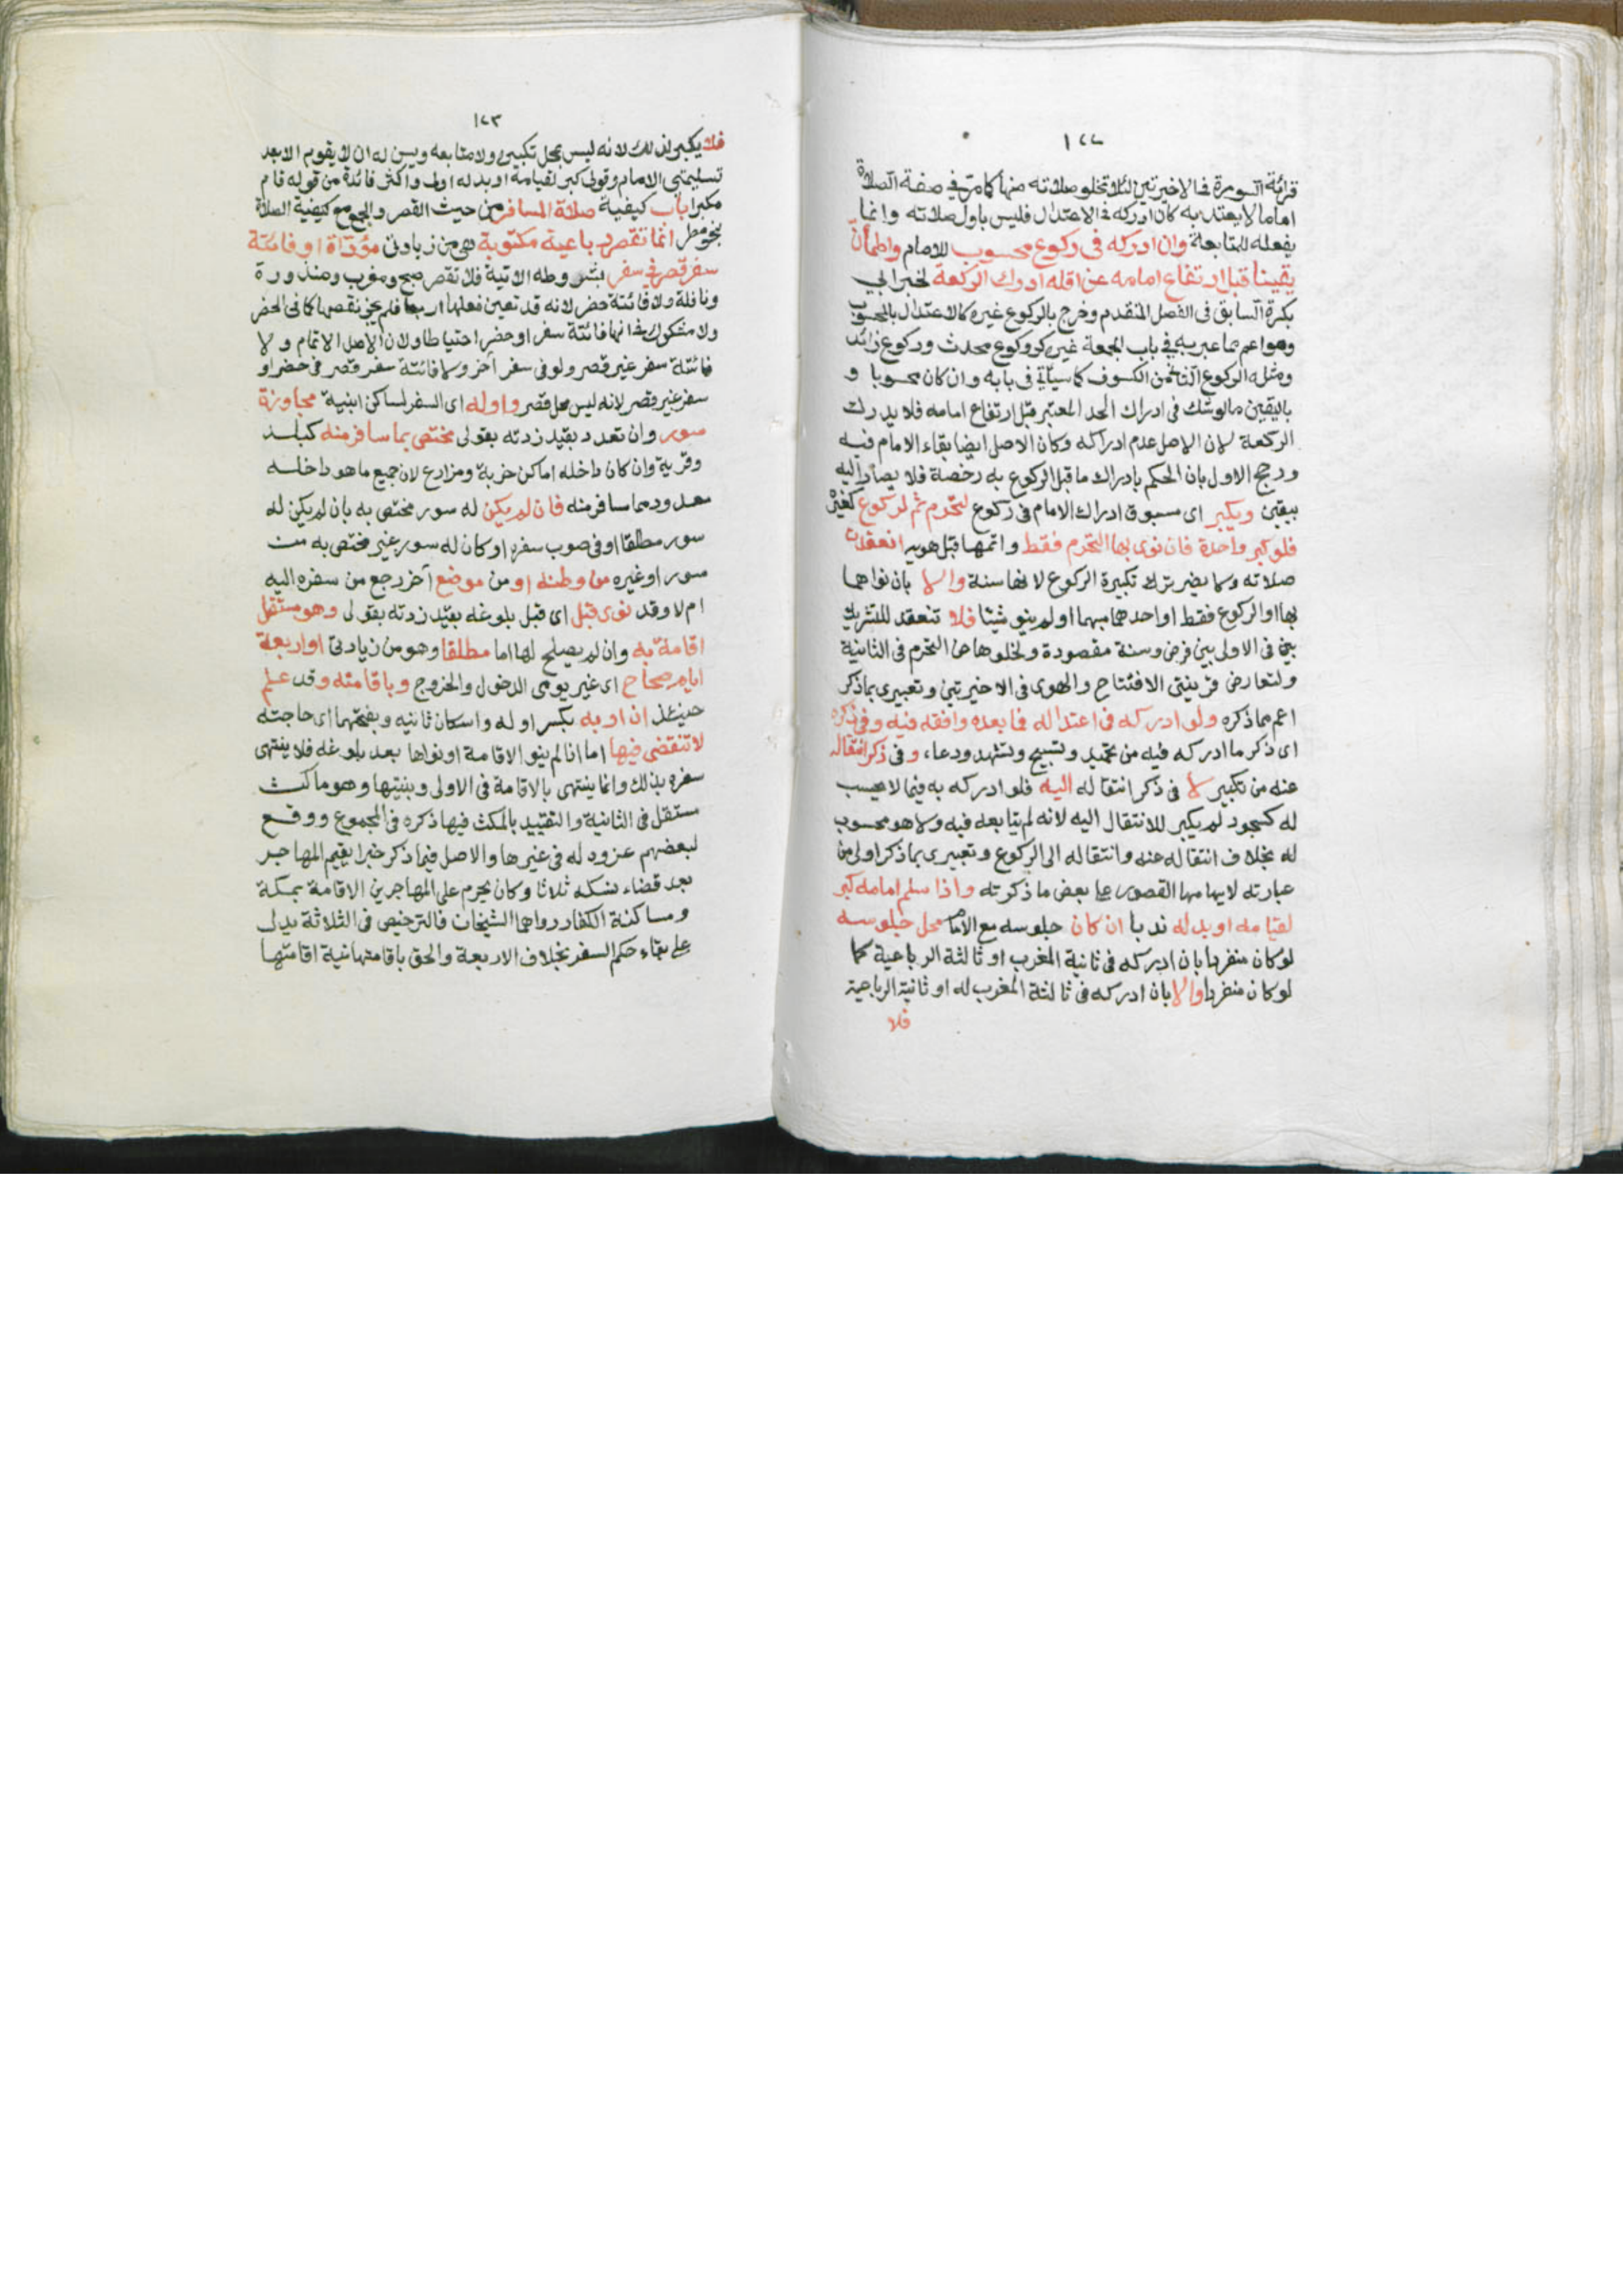 ١٢٢
قرائة السورة فى الاخيرتين لئلا تخلو صلاته منها كما مر فى صفة الصلاة
اما ما لا يعتد به كان ادركه فى الاعتدال فليس باول صلاته وانما
يفعله للمتابعة وان ادركه فى ركوع محسوب للامام واطمأن
يقينا قبل ارتفاع امامه عن اقله ادرك الركعة لخبر ابى
بكرة السابق فى الفصل المتقدم وخرج بالركوع غيره كالاعتدال بالمحسوب
وهو اعم مما عبر به فى باب الجمعة غيره كركوع محدث وركوع زائد
ومثله الركوع الثانى من الكسوف كما سيأتى فى بابه وان كان محسوبا و
باليقين مالو شك فى ادراك الحد المعتبر قبل ارتفاع امامه فلا يدرك
الركعة لان الاصل عدم ادراكه وكان الاصل ايضا بقاء الامام فيه
ورجح الاول بان الحكم بادراك ما قبل الركوع به رخصة فلا يصار اليه
بيقين ويكبر اى مسبوق ادرك الامام فى ركوع لتحرم ثم لركوع كغيره
فلو كبر واحدة فان نوى بها التحرم فقط واتمها قبل هويه انعقدت
صلاته ولا يضر ترك تكبيرة الركوع لانها سنة والا بان نواهما
بها او الركوع فقط او احدهما مبهما او لم ينو شيئا فلا تنعقد للتشريك
بين فى الاولى بين فرض وسنة مقصودة ولخلوها عن التحرم فى الثانية
ولتعارض قرينتى الافتتاح والهوى فى الاخيرتين وتعبيرى بما ذكر
اعم مما ذكره ولو ادركه فى اعتداله فما بعده وافقه فيه وفى ذكره
اى ذكر ما ادركه فيه من تحميد وتسبيح وتشهد ودعاء وفى ذكر انتقاله
عنه من تكبير لا فى ذكر انتقاله اليه فلو ادركه به فيما لا يحسب
له كسجود لم يكبر للانتقال اليه لانه لم يتابعه فيه ولا هو محسوب
له بخلاف انتقاله عنه وانتقاله الى الركوع وتعبيرى بما ذكر اولى من
عبارته لايهامها القصور على بعض ما ذكرته واذا سلم امامه كبر
لقيامه او بدله ندبا ان كان جلوسه مع الامام محل جلوسه
لو كان منفردا بان ادركه فى ثانية المغرب او ثالثة الرباعية كما
لو كان منفردا والا بان ادركه فى ثالثة المغرب له او ثانية الرباعية
فلا
١٢٣
فلا يكبر لذلك لانه ليس بمحل تكبيره ولا متابعه ويسن له ان لا يقوم الا بعد
تسليمتى الامام وقولى كبر لقيامه او بدله اولى واكثر فائدة من قوله قام
مكبرا باب كيفية صلاة المسافر من حيث القصر والجمع مع كيفية الصلاة
بنحو مطر انما تقصر رباعية مكتوبة هى من زيادتى مؤداة او فائتة
سفر قصر فى سفر بشروطه الآتية فلا تقصر صبح ومغرب ومنذورة
ونافلة ولا فائتة حضر لانه قد تعين فعلها اربعا فلم يجز نقصها كما فى الحضر
ولا مشكوك فى انها فائتة سفر او حضر احتياطا ولان الاصل الاتمام ولا
فائتة سفر غير قصر ولو فى سفر آخر ولا فائتة سفر قصر فى حضر او
سفر غير قصر لانه ليس محل قصر واوله اى السفر لساكن ابنية مجاوزة
سور وان تعدد بقيد زدته بقولى مختص بما سافر منه كبلد
وقرية وان كان داخله اماكن خربة ومزارع لان جميع ما هو داخله
معدود مما سافر منه فان لم يكن له سور مختص به بان لم يكن له
سور مطلقا او فى صوب سفره او كان له سور غير مختص به
سور او غيره من وطنه او من موضع آخر رجع من سفره اليه
ام لا وقد نوى قبل اى قبل بلوغه بقيد زدته بقولى وهو مستقل
اقامة به وان لم يصلح لها اما مطلقا وهو من زيادتى او اربعة
ايام صحاح اى غير يومى الدخول والخروج وباقامته وقد علم
حينئذ ان اربه بكسر اوله واسكان ثانيه وبفتحهما اى حاجته
لا تنقضى فيها اما اذا لم ينو الاقامة او نواها بعد بلوغه فلا ينتهى
سفره بذلك وانما ينتهى بالاقامة فى الاولى وبنيتها وهو ماكث
مستقل فى الثانية والتقييد بالمكث فيها ذكره فى المجموع ووقع
لبعضهم عزوه له فى غيرها والاصل فيما ذكر خبر يقيم المهاجر
بعد قضاء نسكه ثلاثا وكان يحرم على المهاجرين الاقامة بمكة
ومساكنة الكفار رواهما الشيخان فالترخيص فى الثلاثة يدل
على بقاء حكم السفر بخلاف الاربعة والحق باقامتها نية اقامتها